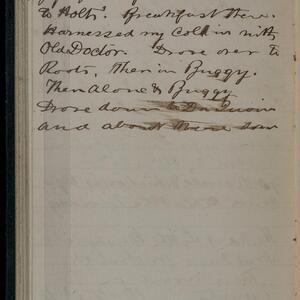 to Holts. Breakfast there.
Harnessed my Colt in with
Old Doctor. Drove over to
Roots, then in Buggy.
Then Alone & Buggy
Drove down to
and about there